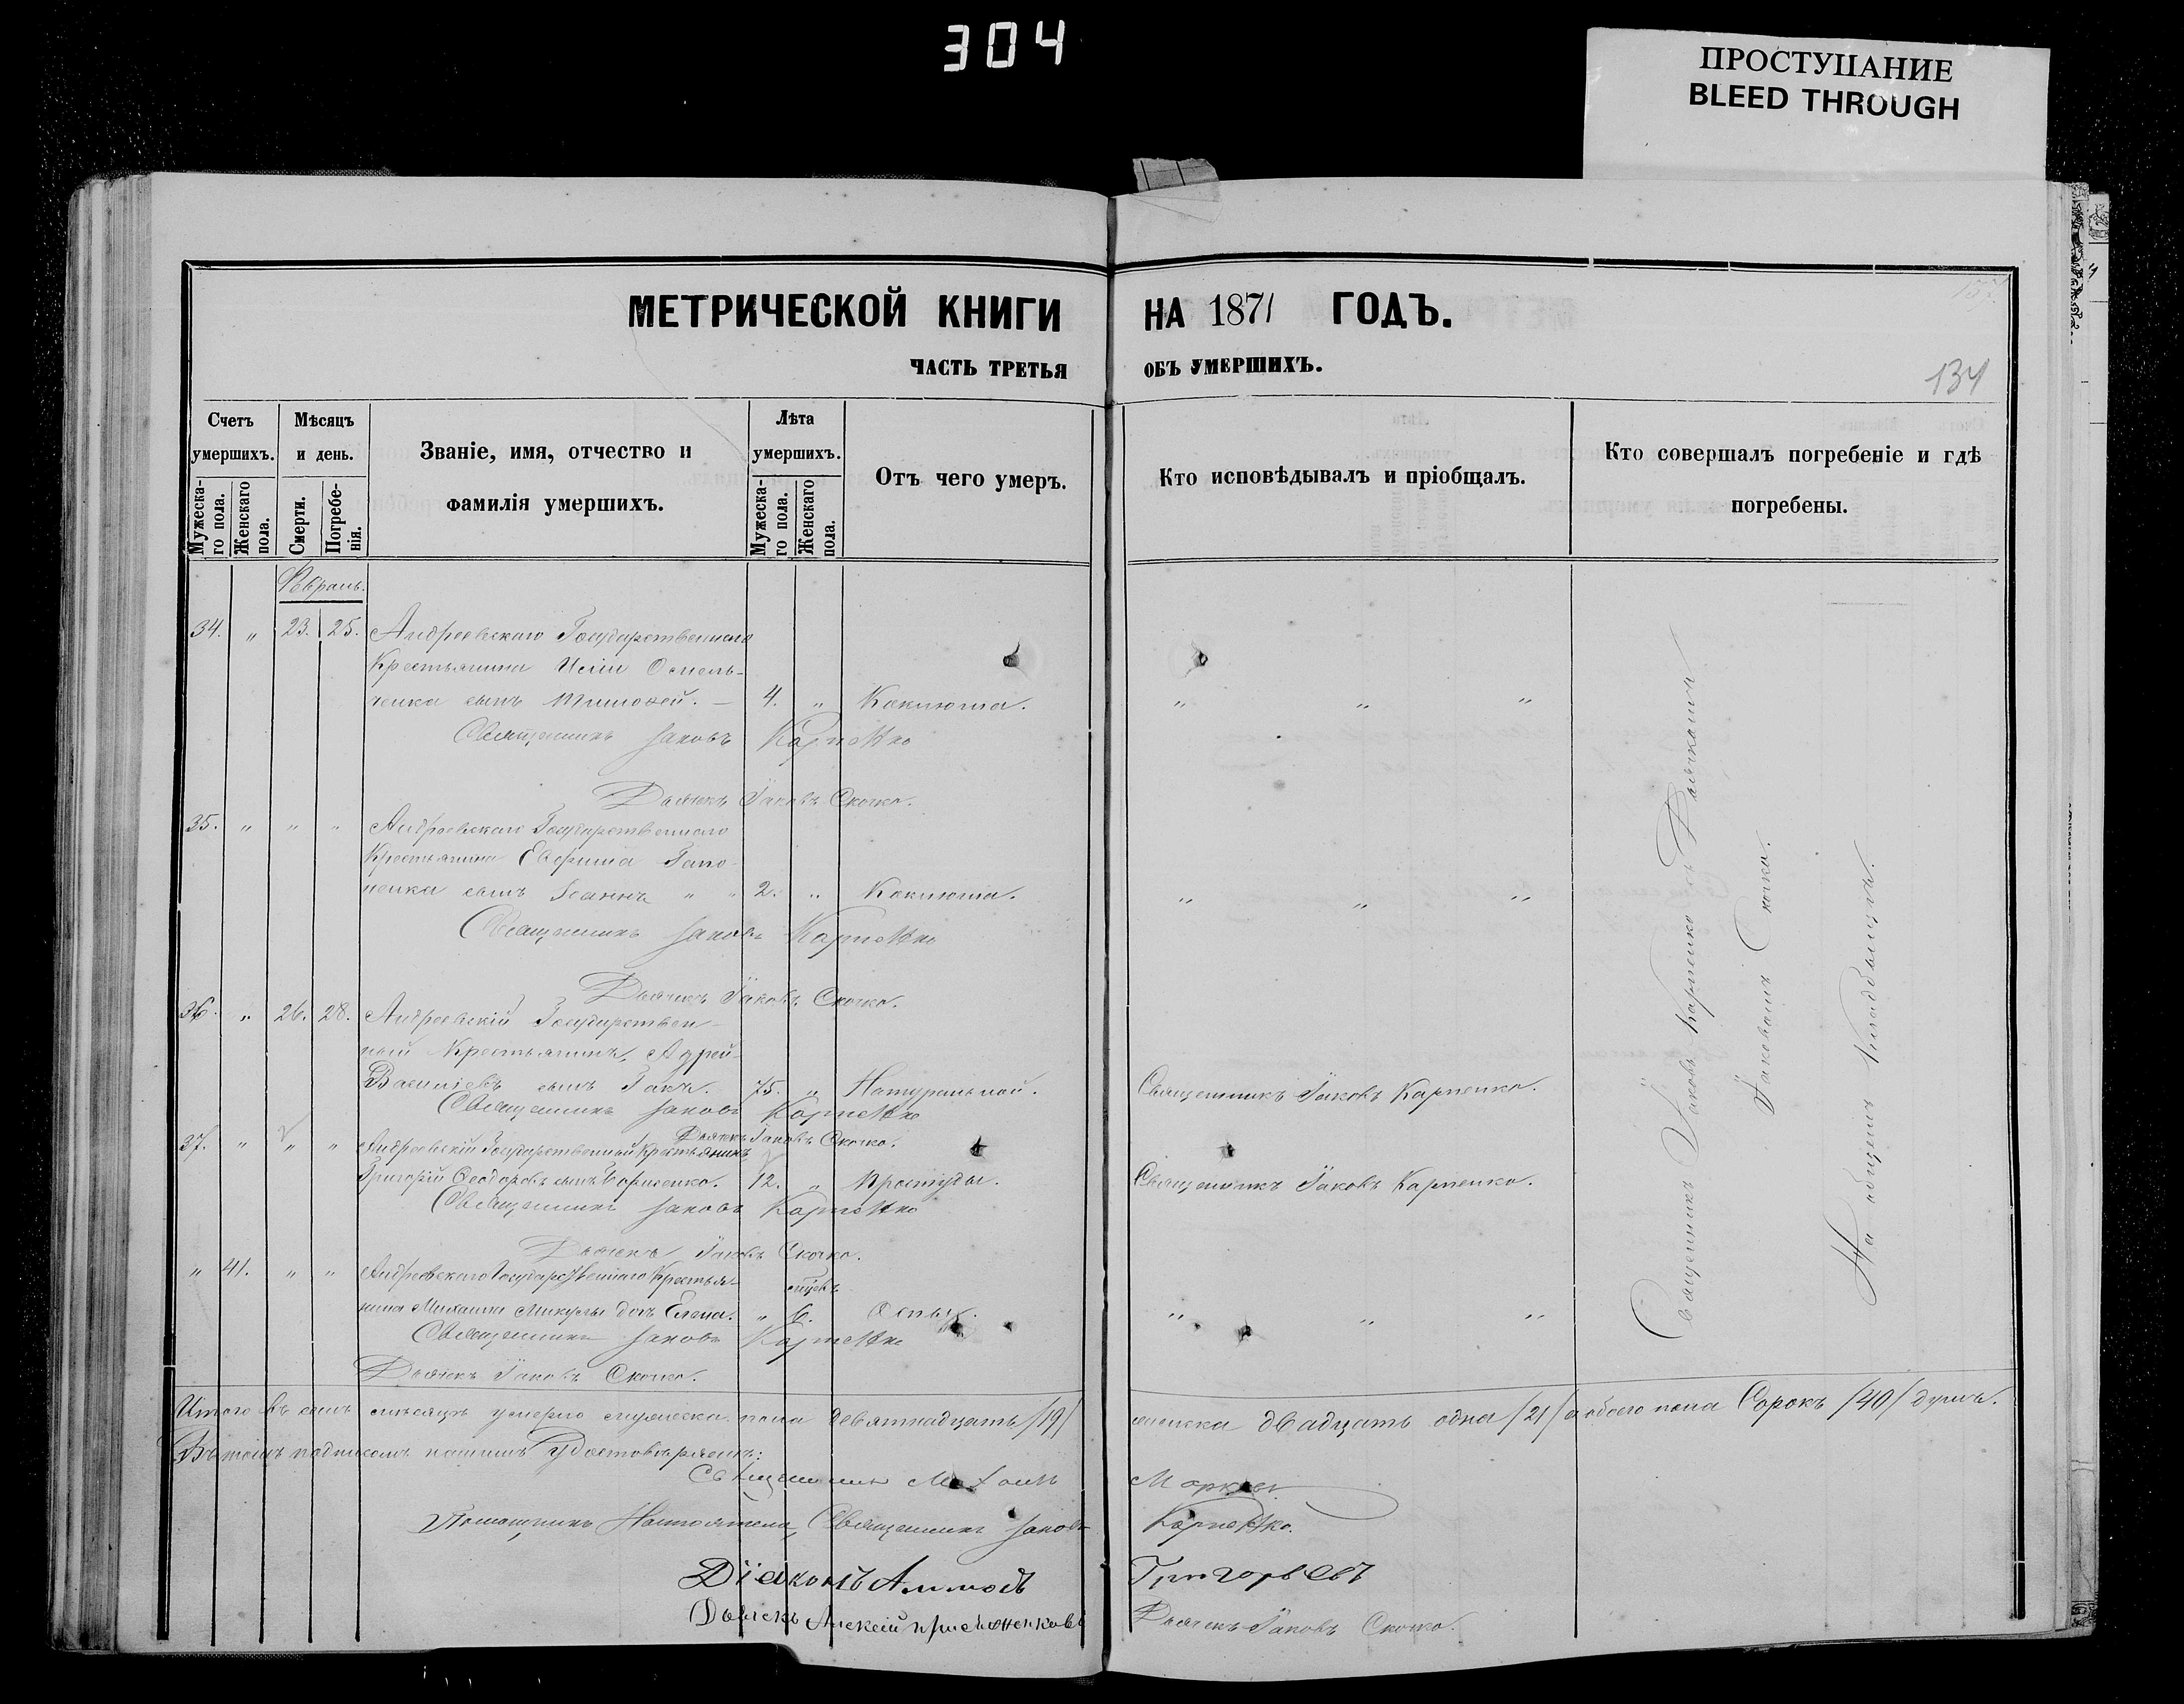 304
ПРОСТУПАНИЕ
BLEED THROUGH
МЕТРИЧЕСКОЙ КНИГИ НА 1871 ГОДЪ.
ЧАСТЬ ТРЕТЬЯ ОБЪ УМЕРШИХЪ.
134
Счетъ умершихъ.
Мужеска-го пола.
Женскаго пола.
Мѣсяцъ и день.
Смерти.
Погребе-нія.
Званіе, имя, отчество и фамилія умершихъ.
Лѣта умершихъ.
Мужеска-го пола.
Женскаго пола.
Отъ чего умеръ.
Кто исповѣдывалъ и пріобщалъ.
Кто совершалъ погребеніе и гдѣ погребены.
Февраль.
34. " 23. 25. Андреевскаго Государственнаго
Крестьянина Исіи Омель-
ченка сынъ Тимофей. — 4. " Коклюша. " " "
Священникъ Іаковъ Карпенко
Дьячекъ Іаковъ Скочко.
35. " " " Андреевскаго Государственнаго
Крестьянина Евфимія Гапо-
ненка сынъ Іоаннъ " " 2. " Коклюша. " " "
Священникъ Іаковъ Карпенко
Дьячекъ Іаковъ Скочко.
36. " 26. 28. Андреевскій Государствен-
ный Крестьянинъ, Адрей
Василіевъ сынъ Гакъ. 75. " Натуральной. Священникъ Іаковъ Карпенко.
Священникъ Іаковъ Карпенко
Дьячекъ Іаковъ Скочко.
37. " " " Андреевскій Государственный Крестьянинъ
Григорій Ѳеодоровъ сынъ Борисенко. 12. " Простуды. Священникъ Іаковъ Карпенко.
Священникъ Іаковъ Карпенко
Дьячекъ Іаковъ Скочко.
" 41. " " Андреевскаго Государственнаго Крестья-
нина Михаила Микулы дочь Елена. " 6. Оспы. " " "
Священникъ Іаковъ Карпенко
Дьячекъ Іаковъ Скочко.
Священникъ Іаковъ Карпенко съ Дьячкомъ
Іаковомъ Скочко.
На общемъ кладбищѣ.
Итого въ семъ мѣсяцѣ умерло мужеска пола девятнадцать /19/ женска двадцать одна /21/ а обоего пола Сорокъ /40/ душъ.
Въ томъ подписомъ нашимъ удостовѣряемъ:
Священникъ
Помощникъ Настоятеля, Священникъ Іаковъ Карпенко.
Діаконъ Григорьевъ
Дьячекъ Алексій
Дьячекъ Іаковъ Скочко.